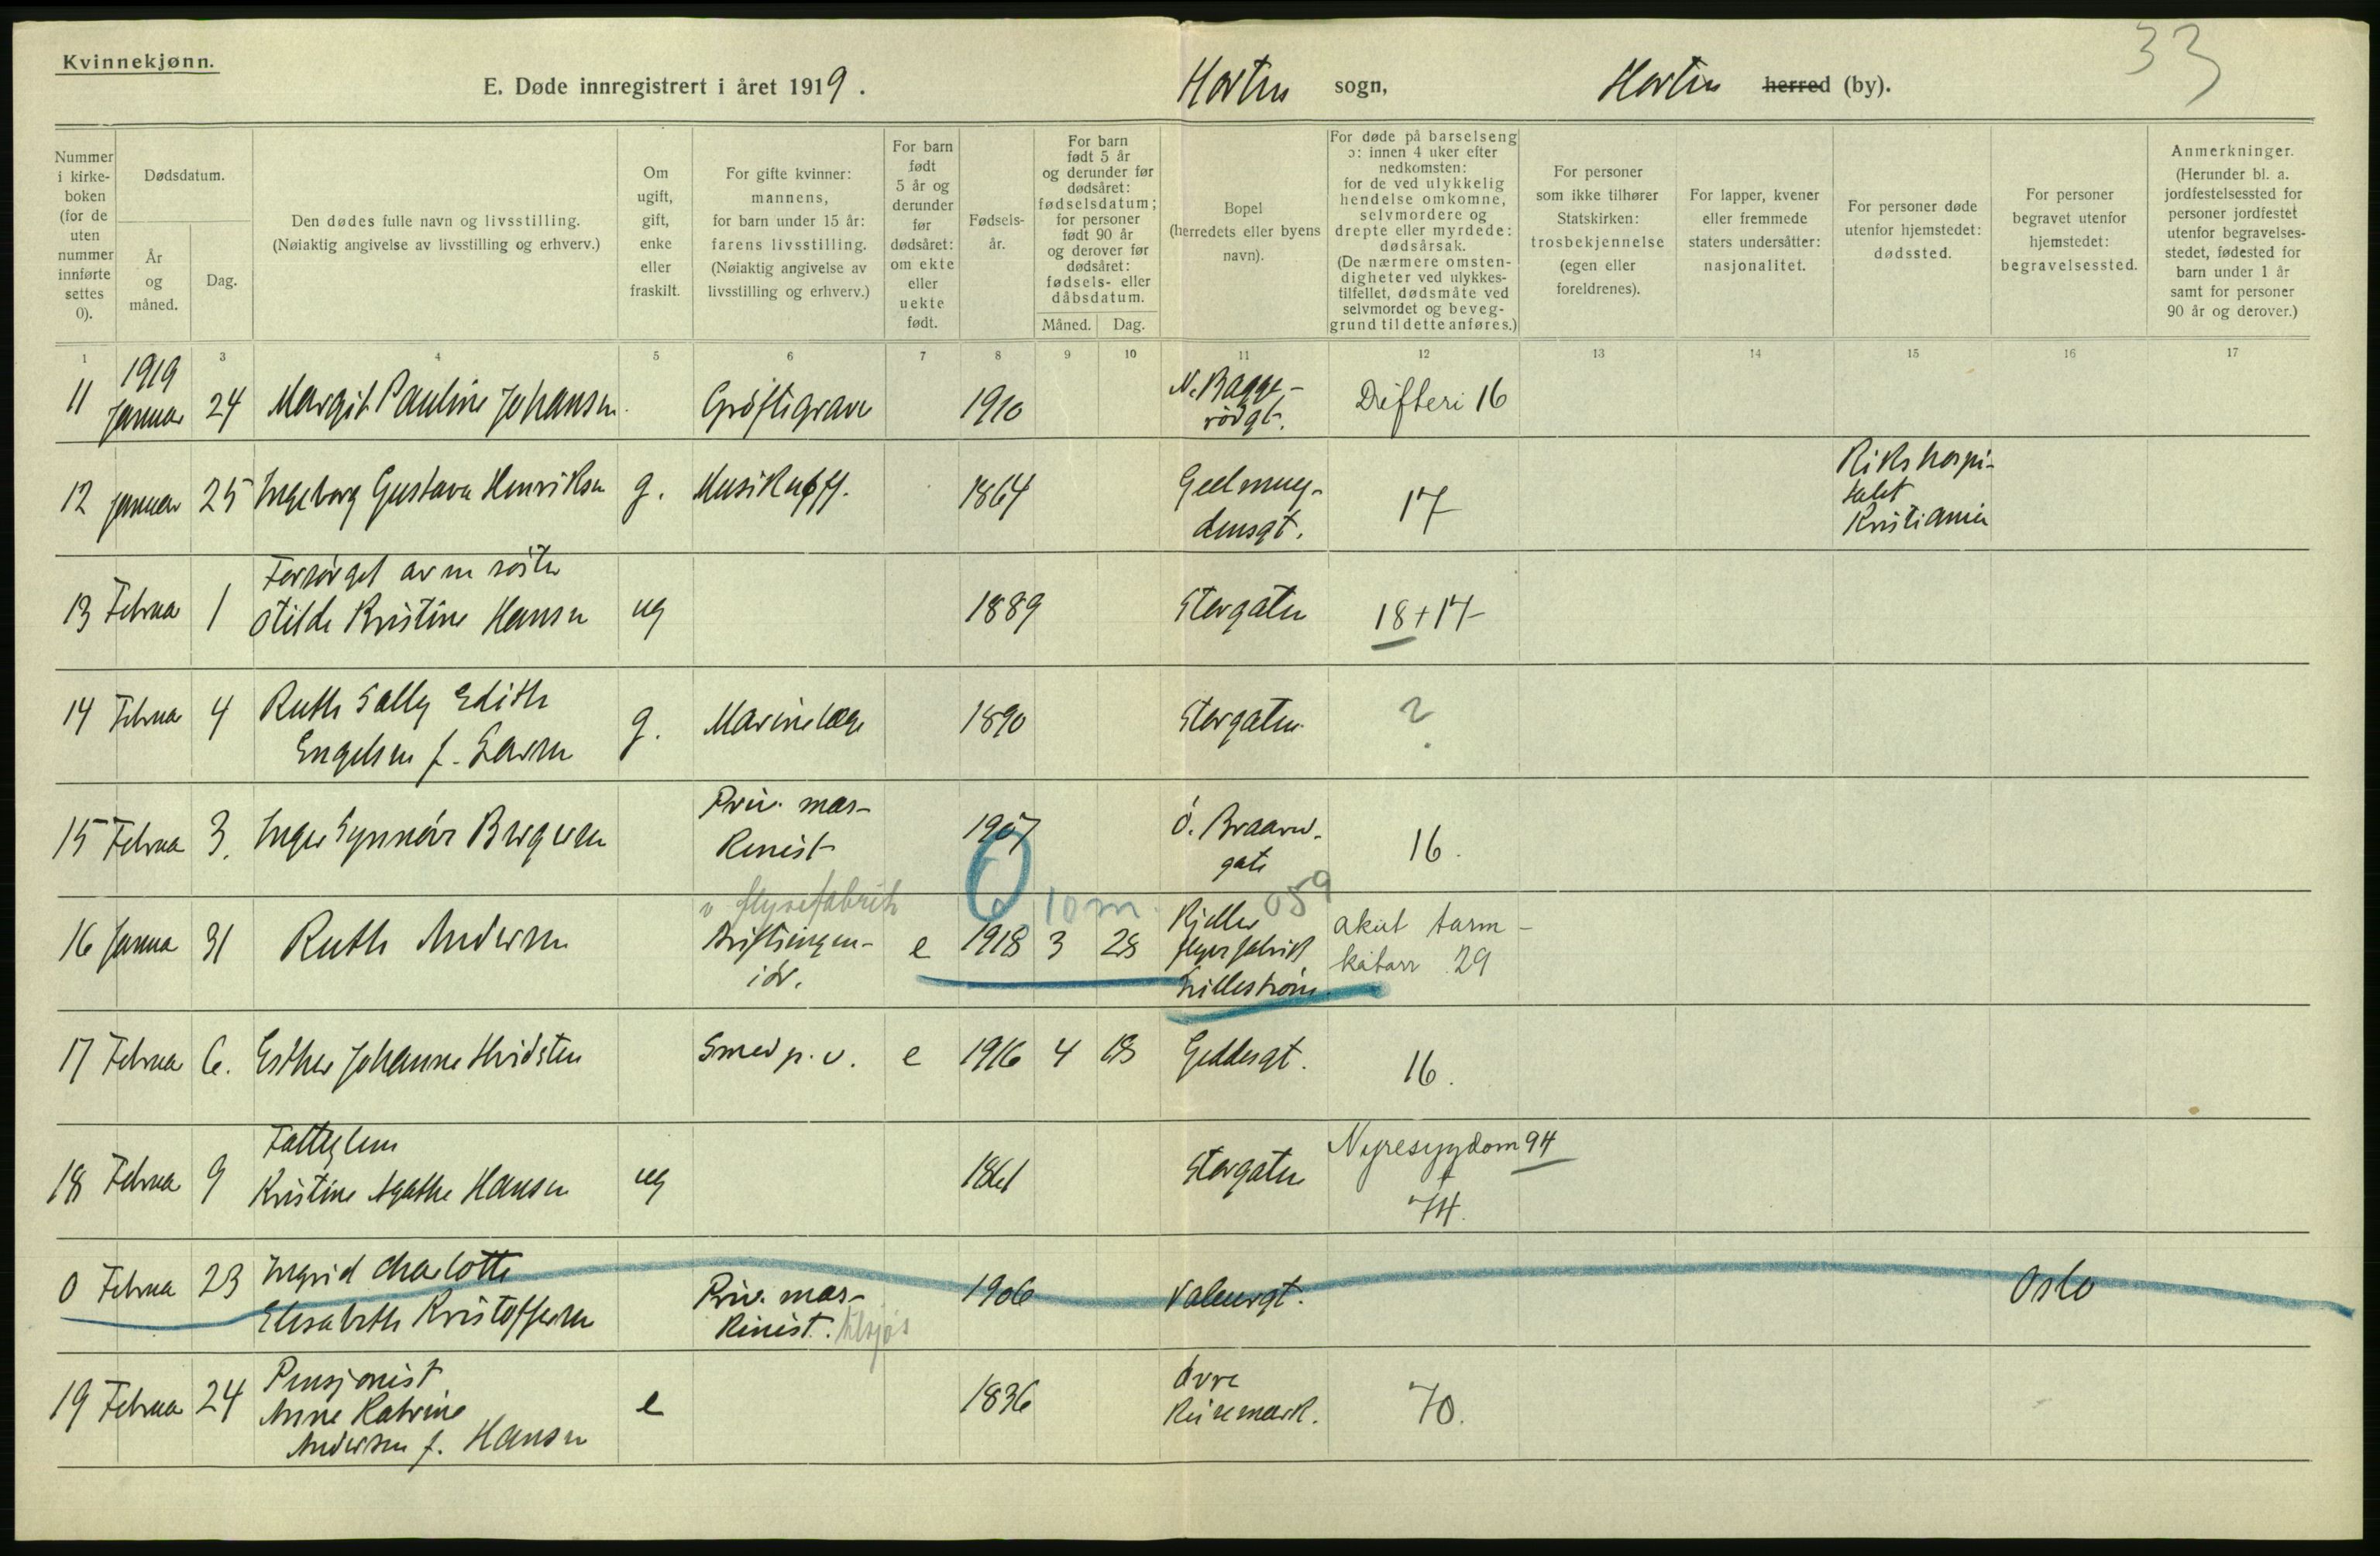 Kvinnekjønn.
33
E. Døde innregistrert i året 1919.
Horten sogn,
Horten herred (by).
Nummer i kirke-boken (for de uten nummer innførte settes 0).
Dødsdatum.
År og måned.
Dag.
Den dødes fulle navn og livsstilling.
(Nøiaktig angivelse av livsstilling og erhverv.)
Om ugift, gift, enke eller fraskilt.
For gifte kvinner: mannens, for barn under 15 år: farens livsstilling.
(Nøiaktig angivelse av livsstilling og erhverv.)
For barn født 5 år og derunder før dødsåret: om ekte eller uekte født.
Fødsels-år.
For barn født 5 år og derunder før dødsåret: fødselsdatum; for personer født 90 år og derover før dødsåret: fødsels- eller dåbsdatum.
Måned.
Dag.
Bopel (herredets eller byens navn).
For døde på barselseng ɔ: innen 4 uker efter nedkomsten: for de ved ulykkelig hendelse omkomne, selvmordere og drepte eller myrdede: dødsårsak.
(De nærmere omsten-digheter ved ulykkes-tilfellet, dødsmåte ved selvmordet og beveg-grund til dette anføres.)
For personer som ikke tilhører Statskirken: trosbekjennelse (egen eller foreldrenes).
For lapper, kvener eller fremmede staters undersåtter: nasjonalitet.
For personer døde utenfor hjemstedet: dødssted.
For personer begravet utenfor hjemstedet: begravelsessted.
Anmerkninger.
(Herunder bl. a. jordfestelsessted for personer jordfestet utenfor begravelses-stedet, fødested for barn under 1 år samt for personer 90 år og derover.)
1 2 3 4 5 6 7 8 9 10 11 12 13 14 15 16 17
1919
11 Januar 24 Margit Pauline Johansen Grøftegraver 1910 N. Bagge-
rødgt. Difteri 16
12 Januar 25 Ingeborg Gustava Henriksen g. Musikuoff. 1864 Geelmuy-
densgt. 17 Rikshospi-
talet
Kristiania
Forsørget av en søster
13 Februar 1 Otilde Kristine Hansen ug 1889 Storgaten 18+17
14 Februar 4 Ruth Sally Edith
Engelsen f. Larsen g. Marinelæge 1890 Storgaten ?
15 Februar 3. Inger Synnöve Bergersen Priv. mas-
kinist 1907 Ö. Braarud-
gate 16.
v flyvefabrik 6 10 m. 059
16 Januar 31 Ruth Andersen Driftsingen-
iör. e 1918 3 28 Kjeller
flyvefabrik
Lillestrøm. akut tarm-
katarr 29
17 Februar 6. Esther Johanne Hvidsten Smed p. v. e 1916 4 18 Geddesgt. 16.
Fattiglem
18 Februar 9 Kristine Agathe Hansen ug 1861 Storgaten Nyresygdom 94
+
74.
0 Februar 23 Ingrid Charlotte
Elisabeth Kristoffersen Priv. mas-
kinist. tilsjøs 1906 Valeurgt. Oslo
Pensjonist
19 Februar 24 Anne Katrine
Andersen f. Hansen e 1836 Övre
Keisemark. 70.